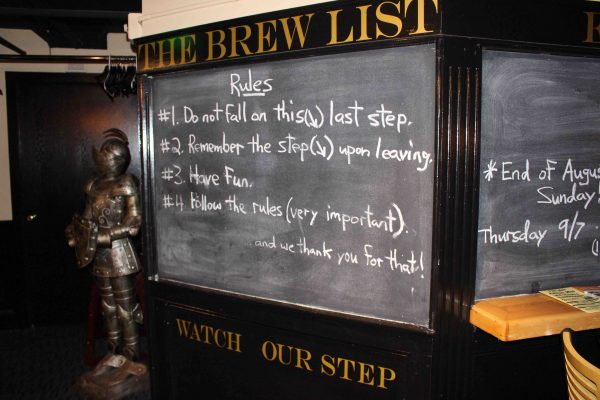 THE BREW LIST
Rules
#1. Do not fall on this(↘) last step.
#2. Remember the step(↘) upon leaving.
#3. Have Fun.
#4 Follow the rules (very important).
...and we thank you for that!
WATCH OUR STEP
* End of Augus
Sunday!
Thursday 9/7